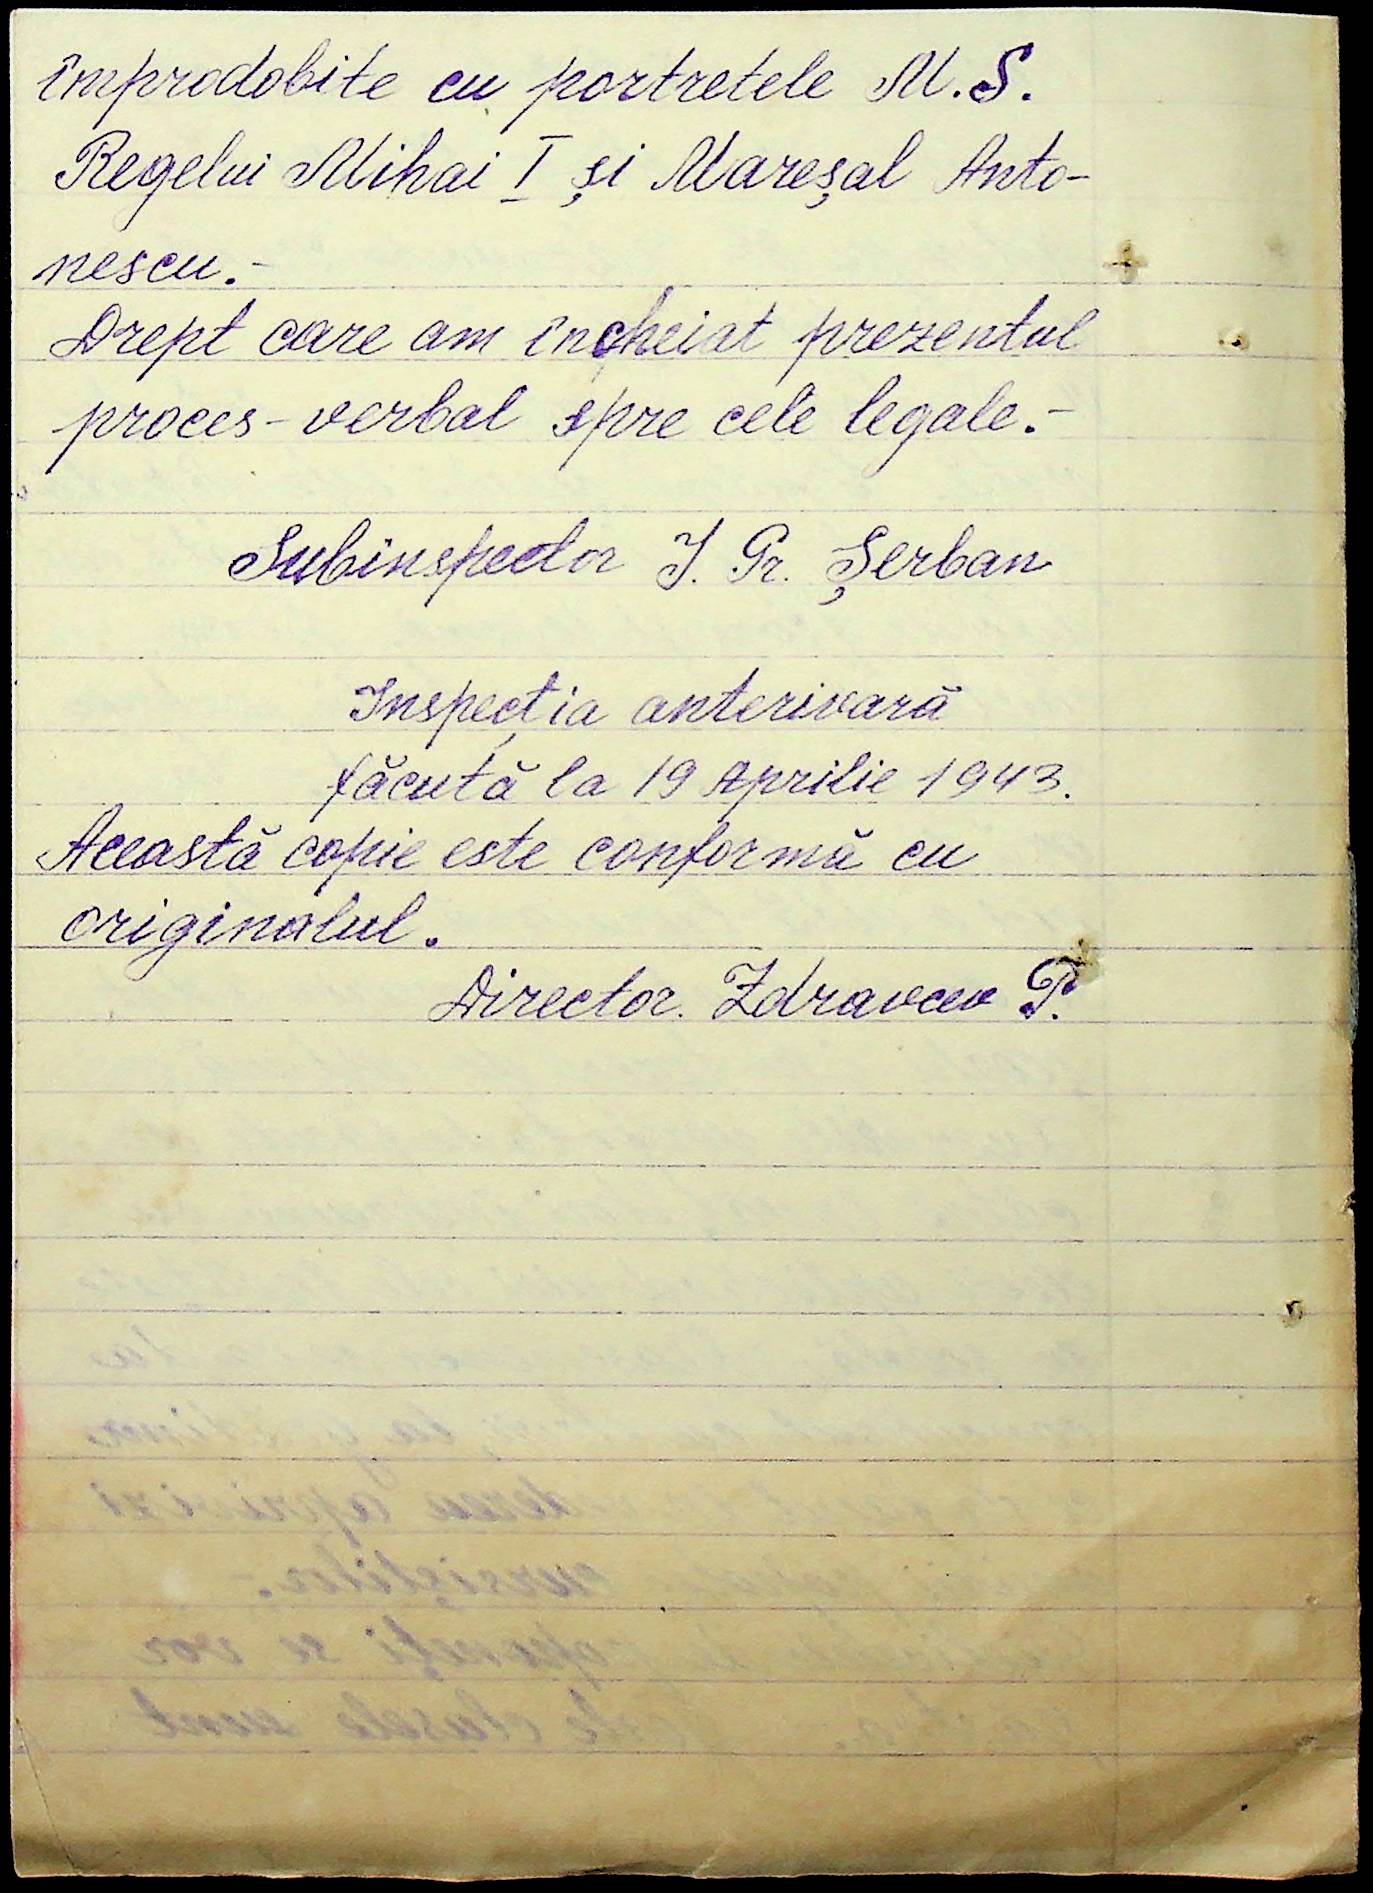 împrodobite cu portretele M.S.
Regelui Mihai I și Mareșal Anto-
nescu.-
Drept care am încheiat prezentul
proces-verbal spre cele legale.-
Subinspector I. Gr. Șerban
Inspecția anterivară
făcută la 19 Aprilie 1943.
Această copie este conformă cu
originalul.
Director. Zdravcev P.